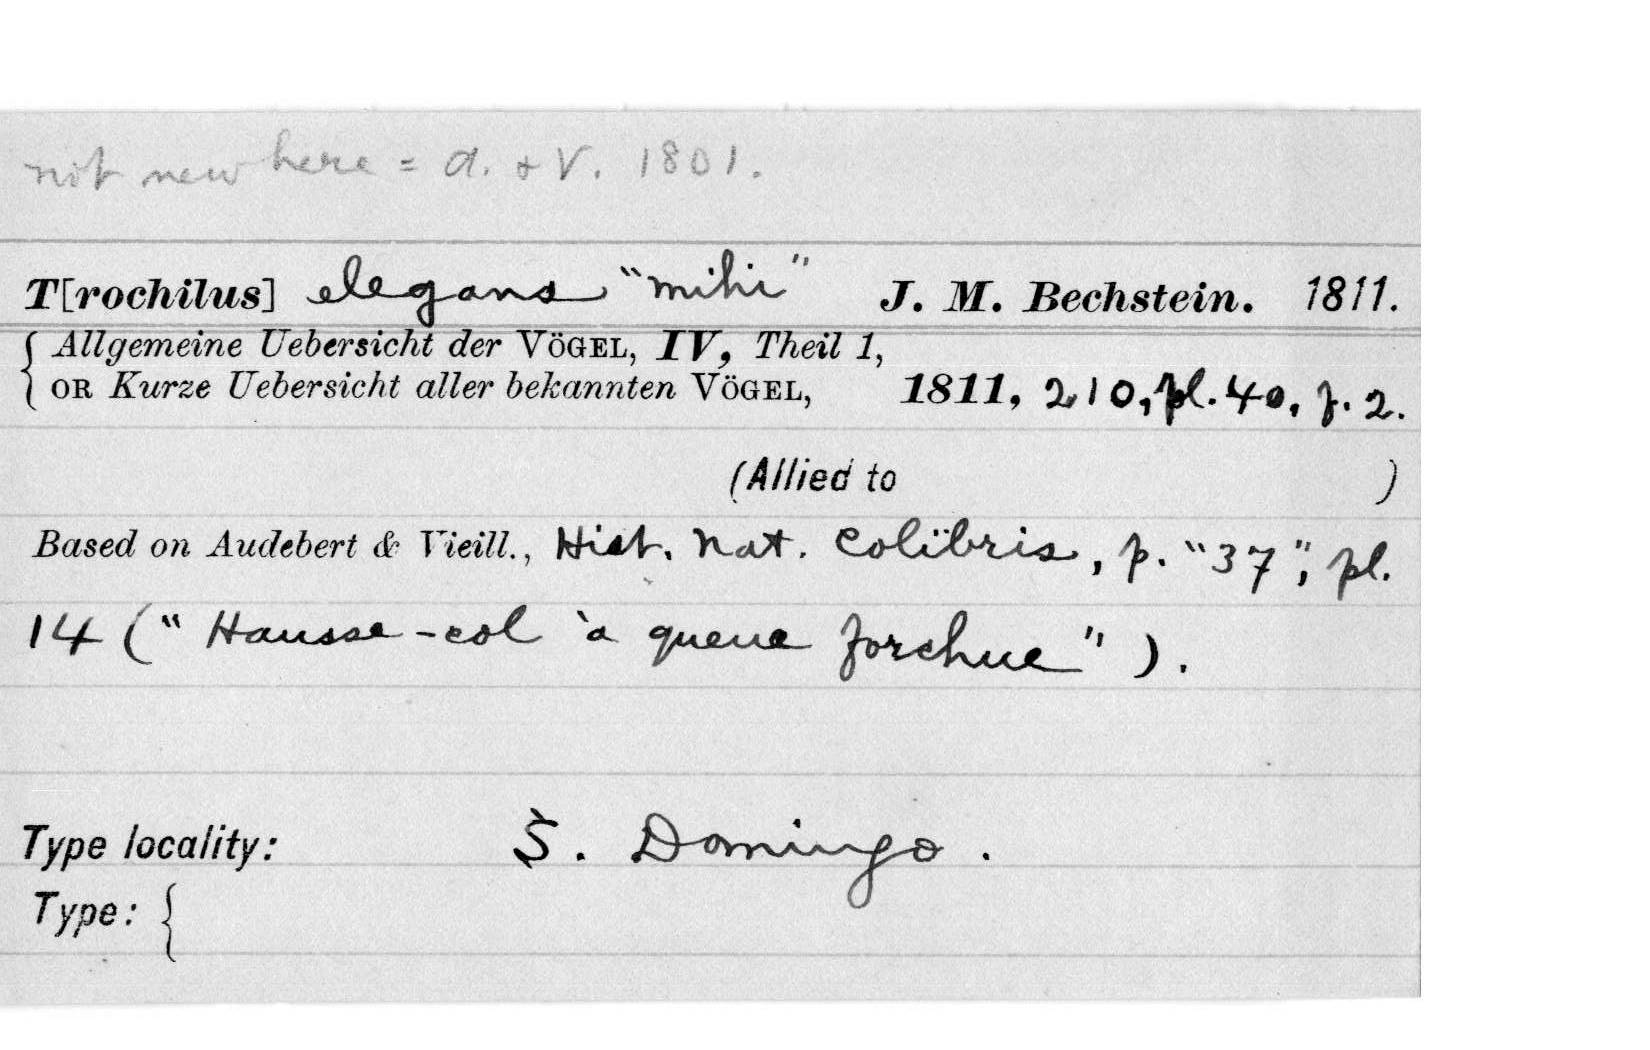 not new here = A. + V. 1801.
T[rochilus] elegans "mihi" J. M. Bechstein. 1811.
Allgemeine Uebersicht der VÖGEL, IV, Theil 1,
OR Kurze Uebersicht aller bekannten VÖGEL, 1811, 210, pl. 40, f. 2.
(Allied to )
Based on Audebert & Vieill., Hist. Nat. Colïbris, p. "37", pl.
14 ("Hausse-col à queue forchue").
Type locality: S. Domingo.
Type: {